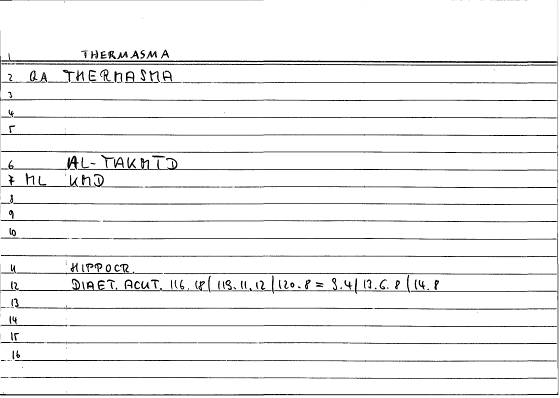 1 THERMASMA
2 QA THERMASMA
3
4
5
6 AL-TAKMĪD
7 ML KMD
8
9
10
11 HIPPOCR.
12 DIAET. ACUT. 116.18 | 119.11.12 | 120.8 = 9.4 | 13.6.8 | 14.8
13
14
15
16